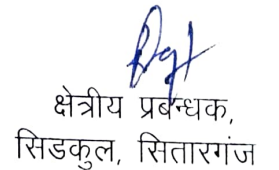 क्षेत्रीय प्रबन्धक,
सिडकुल, सितारगंज